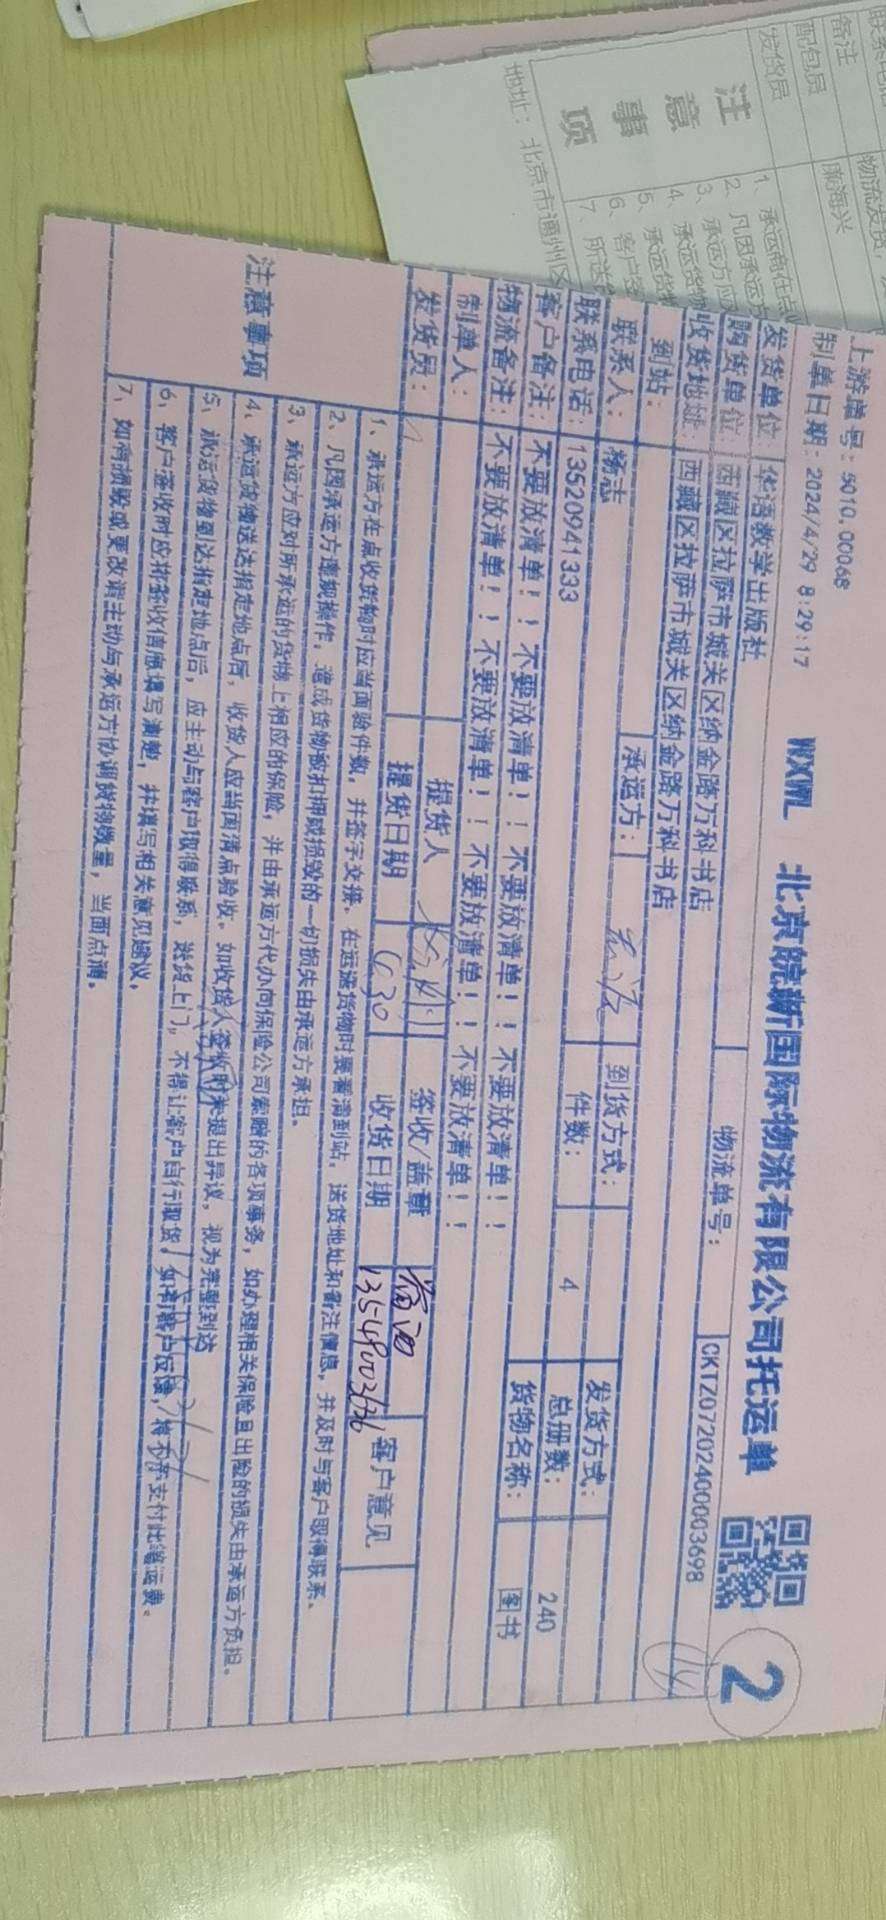 上游单号：5010.00068
制单日期：2024/4/29 8:29:17
WXWL 北京皖新国际物流有限公司托运单
2
发货单位 华语教学出版社
物流单号：
CKTZ0720240003698
购货单位：西藏区拉萨市城关区纳金路万科书店
收货地址：西藏区拉萨市城关区纳金路万科书店
到站：
承运方：
到货方式：
发货方式：
联系人：杨志
联系电话：13520941333
件数：4
总册数：240
客户备注：不要放清单！！不要放清单！！不要放清单！！不要放清单！！
货物名称：图书
物流备注：不要放清单！！不要放清单！！不要放清单！！不要放清单！！
制单人：
提货人
签收/盖章
客户意见
发货员：
提货日期 4.30
收货日期
注意事项
1、承运方在点收货物时应当面验件数，并签字交接。在运送货物时要看清到站，送货地址和备注信息，并及时与客户取得联系。
2、凡因承运方违规操作，造成货物被扣押或损毁的一切损失由承运方承担。
3、承运方应对所承运的货物上相应的保险，并由承运方代办向保险公司索赔的各项事务，如办理相关保险且出险的损失由承运方负担。
4、承运货物送达指定地点后，收货人应当面清点验收。如收货人签收时未提出异议，视为完整到达
5、承运货物到达指定地点后，应主动与客户取得联系，送货上门，不得让客户自行取货。如有客户反馈，将不予支付此笔运费。
6、客户签收时应将签收信息填写清楚，并填写相关意见建议。
7、如有损毁或更改请主动与承运方协调货物数量，当面点清。
联系电话
备注 物流发货，
配包员 陈海兴
发货员
注意事项
1、承运商在点收
2、凡因承运方
3、承运方应
4、承运货物
5、承运货物
6、客户签
7、所送
地址：北京市通州区